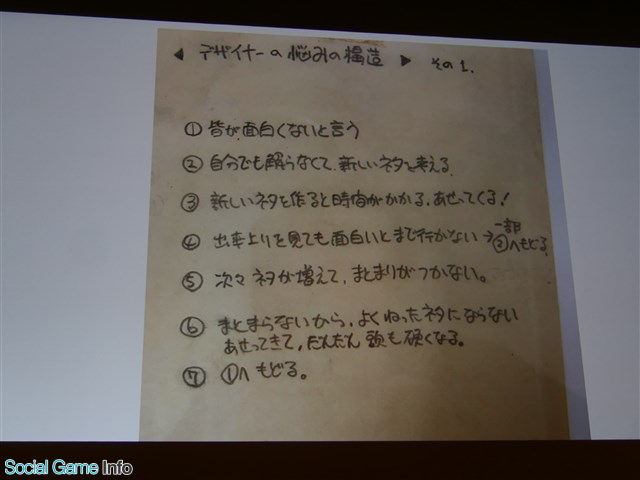 ◀ デザイナーの悩みの構造 ▶ その1.
① 皆が面白くないと言う
② 自分でも解らなくて、新しいネタを考える
③ 新しいネタを作ると時間がかかる、あせってくる!
④ 出来上りを見ても面白いとまで行かない→一部②へもどる
⑤ 次々ネタが増えて、まとまりがつかない。
⑥ まとまらないから、よくねったネタにならない
あせってきて、だんだん頭も硬くなる。
⑦ ①へもどる。
Social Game Info